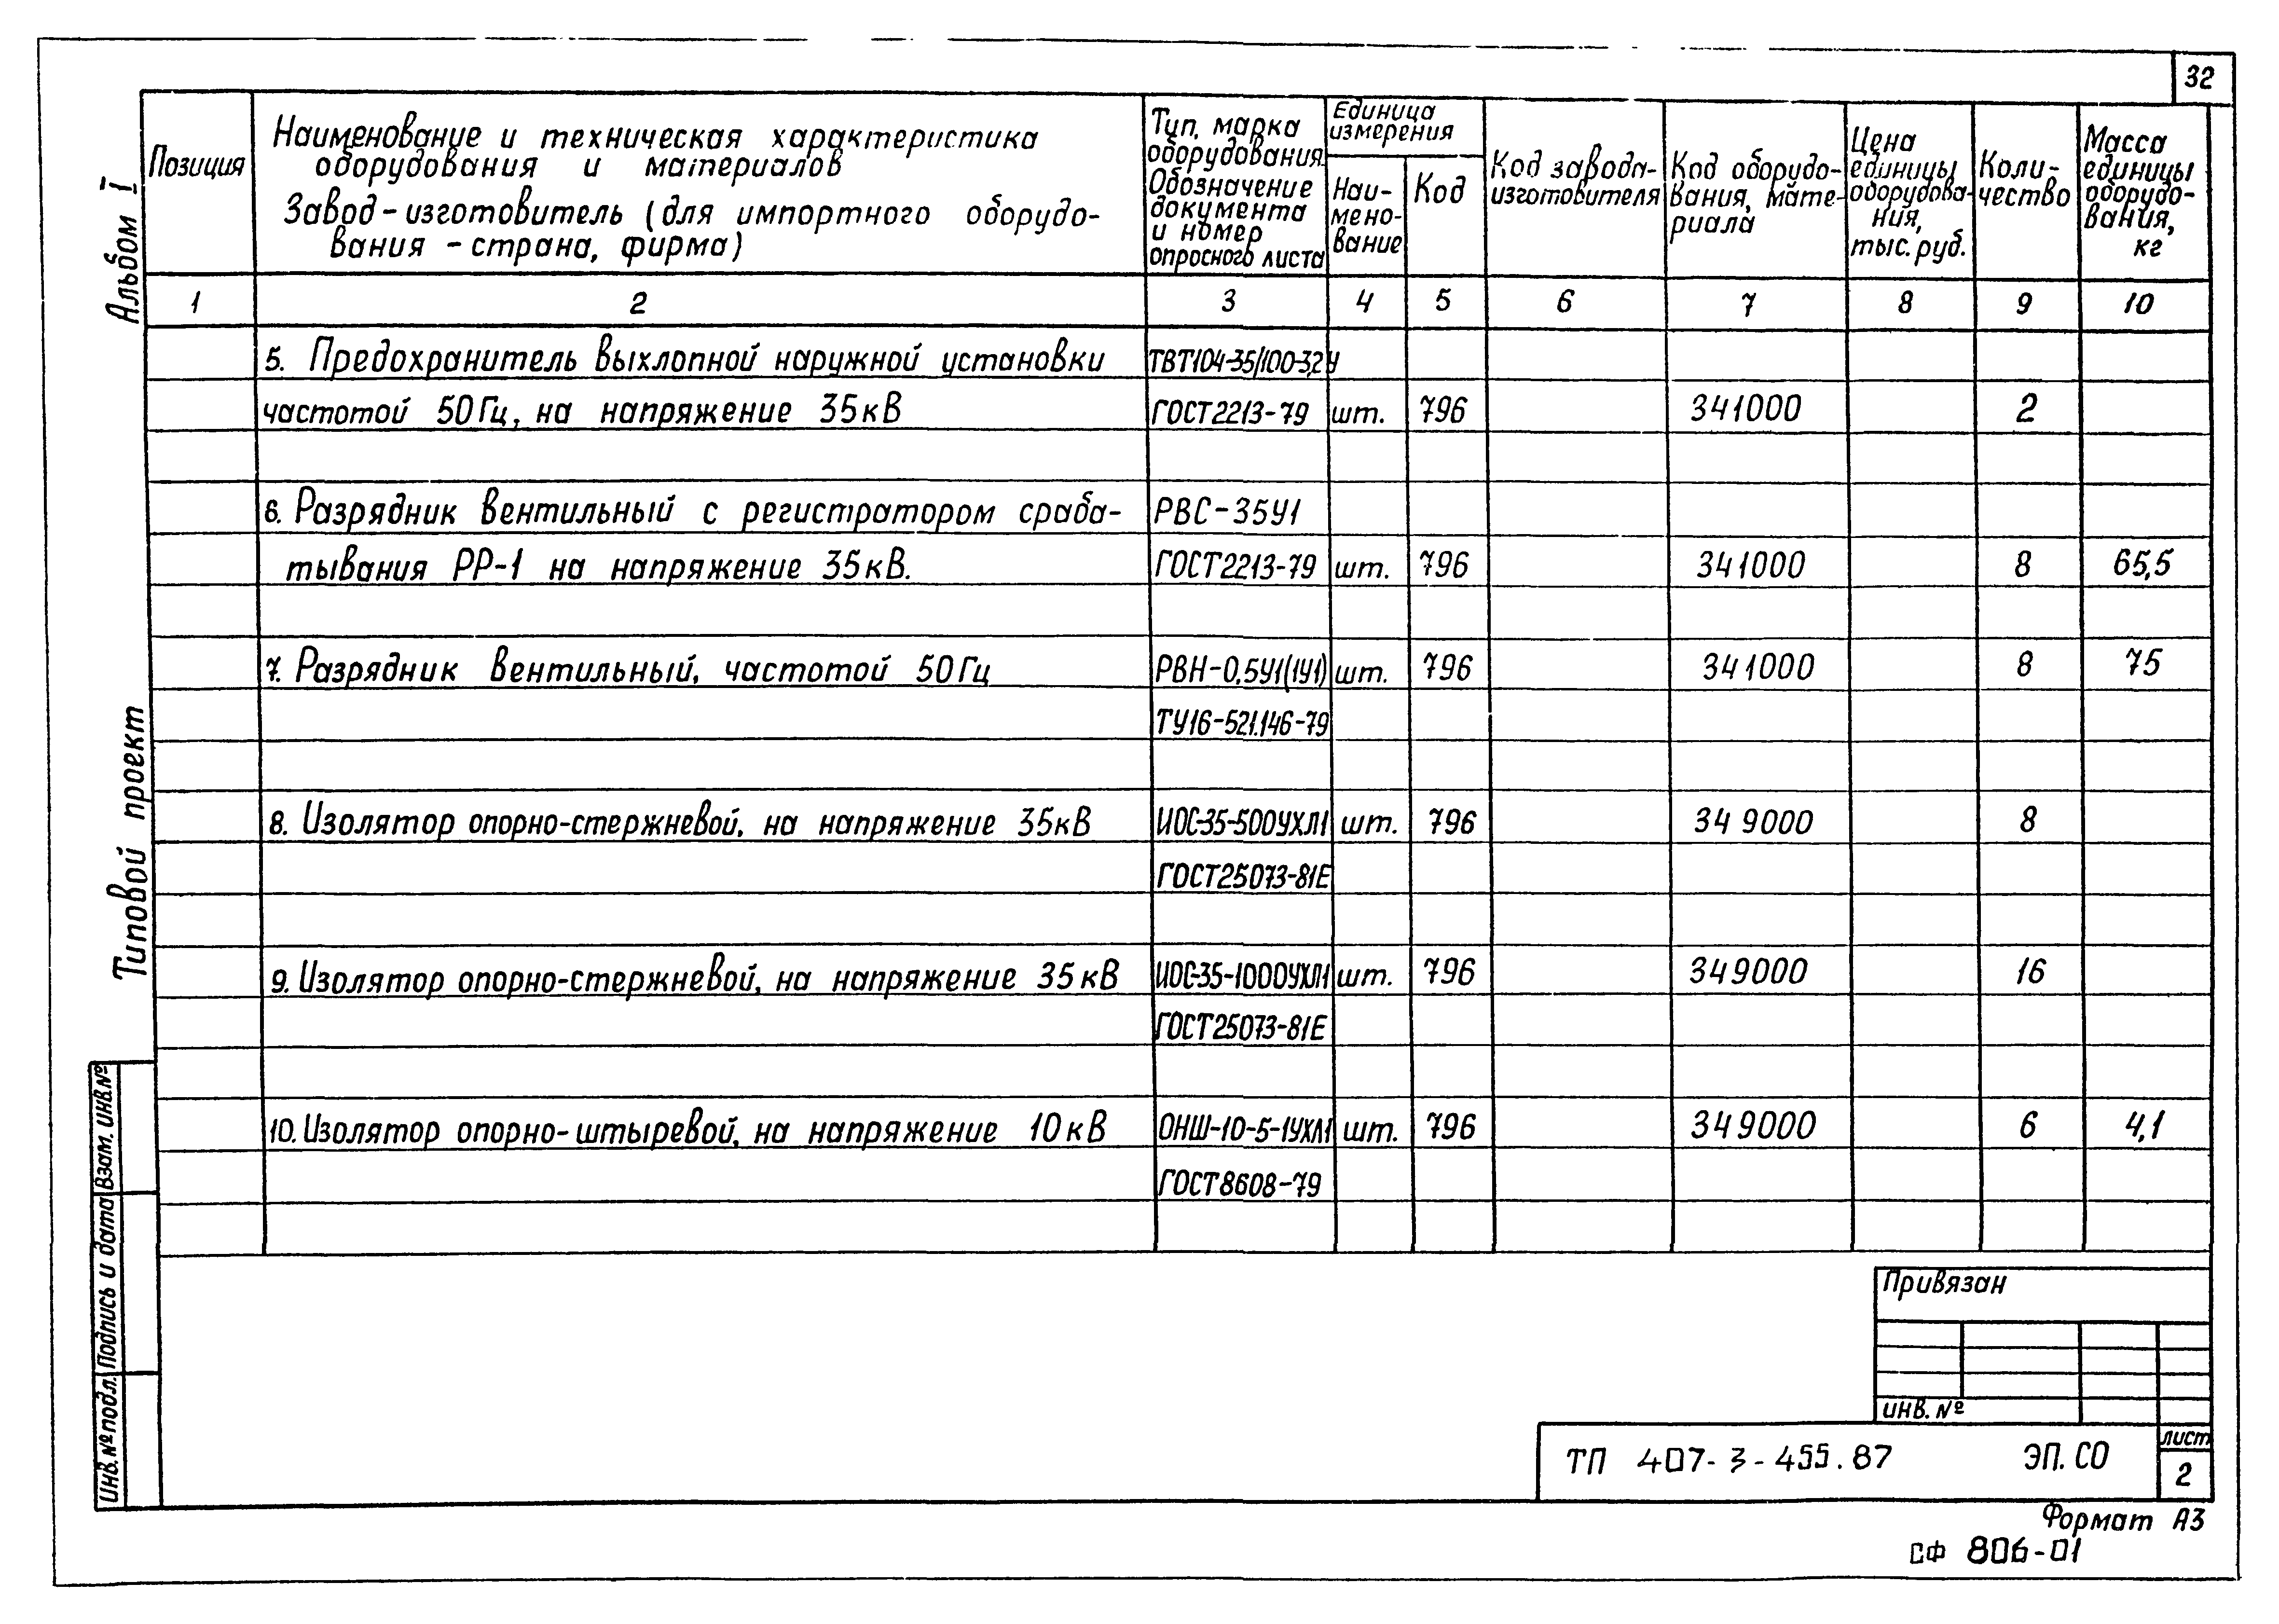 32
Альбом I
Типовой проект
Позиция
Наименование и техническая характеристика
оборудования и материалов
Завод-изготовитель (для импортного оборудо-
вания - страна, фирма)
Тип, марка
оборудования.
Обозначение
документа
и номер
опросного листа
Единица
измерения
Наи-
мено-
вание
Код
Код завода-
изготовителя
Код оборудо-
вания, мате-
риала
Цена
единицы
оборудова-
ния,
тыс. руб.
Коли-
чество
Масса
единицы
оборудо-
вания,
кг
1 2 3 4 5 6 7 8 9 10
5. Предохранитель выхлопной наружной установки ТВТ104-35/100-3,2У
частотой 50Гц, на напряжение 35кВ ГОСТ2213-79 шт. 796 341000 2
6. Разрядник вентильный с регистратором сраба- РВС-35У1
тывания РР-1 на напряжение 35кВ. ГОСТ2213-79 шт. 796 341000 8 65,5
7. Разрядник вентильный, частотой 50Гц РВН-0,5У1(1У1) шт. 796 341000 8 75
ТУ16-521.146-79
8. Изолятор опорно-стержневой, на напряжение 35кВ ИОС-35-500УХЛ1 шт. 796 349000 8
ГОСТ25073-81Е
9. Изолятор опорно-стержневой, на напряжение 35кВ ИОС-35-1000УХЛ1 шт. 796 349000 16
ГОСТ25073-81Е
10. Изолятор опорно-штыревой, на напряжение 10кВ ОНШ-10-5-1УХЛ1 шт. 796 349000 6 4,1
ГОСТ8608-79
Взам. инв.№
Подпись и дата
Инв.№подл.
Привязан
инв. №
ТП 407-3-455.87 ЭП.СО
лист
2
Формат А3
СФ 806-01